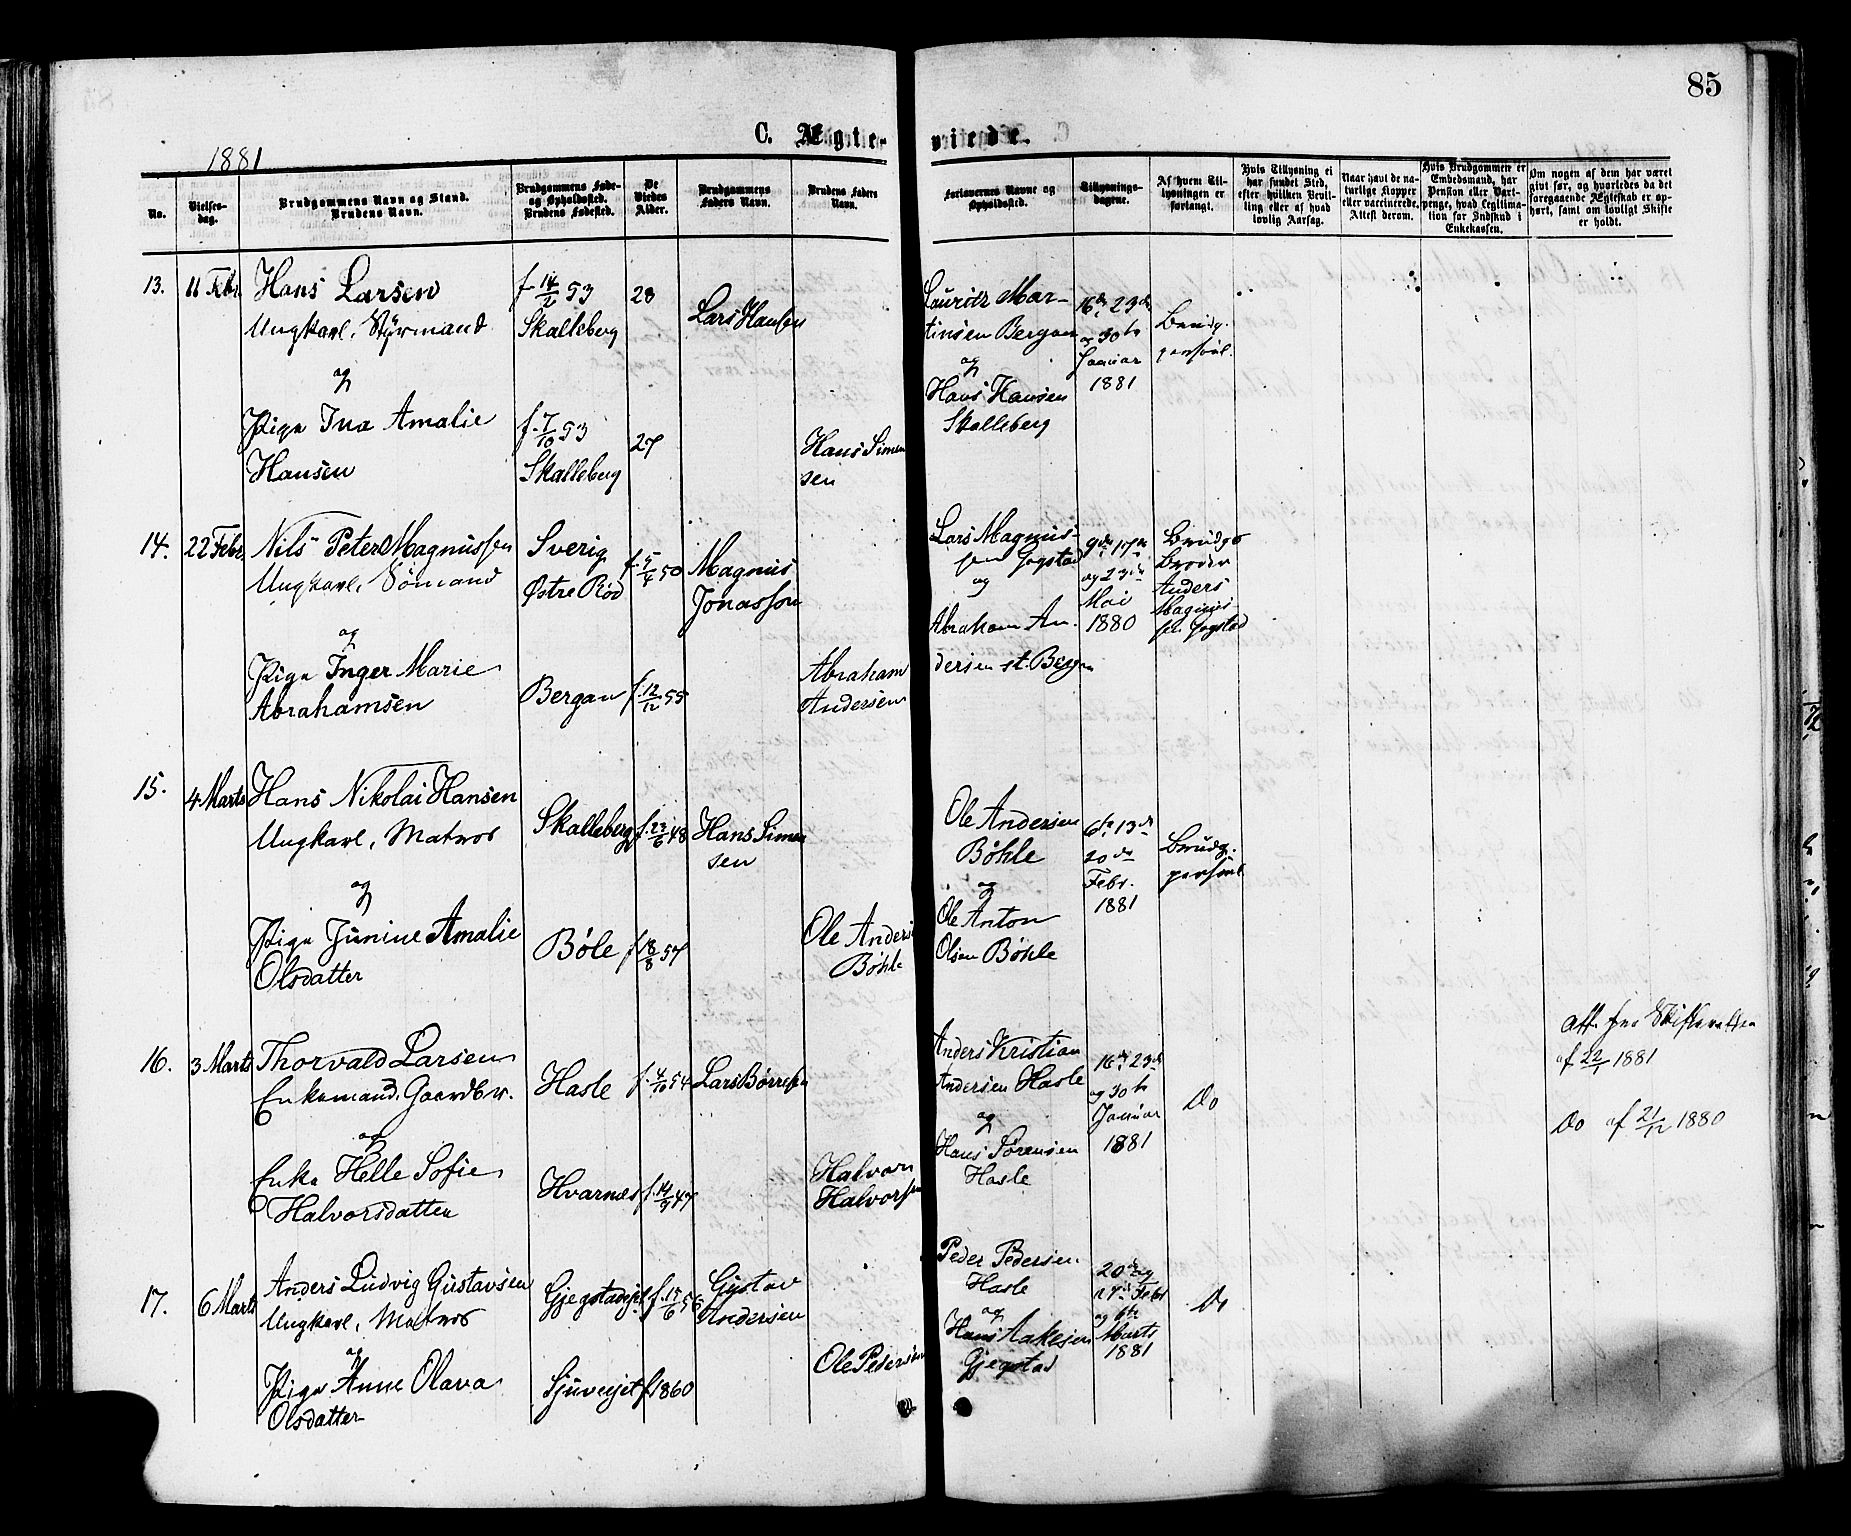 85
C. Ægte-
viede.
1881
No.
Vielses-
dag.
Brudgommens Navn og Stand.
Brudens Navn.
Brudgommens Føde-
og Opholdssted.
Brudens Fødested.
De
Viedes
Alder.
Brudgommens
Faders Navn.
Brudens Faders
Navn.
Forlovernes Navne og
Opholdssted.
Tillysnings-
dagene.
Af hvem Til-
lysningen er
forlangt.
Hvis Tillysning ei
har fundet Sted,
efter hvilken Bevil-
ling eller af hvad
lovlig Aarsag.
Naar havt de na-
turlige Kopper
eller vaccinerede.
Attest derom.
Hvis Brudgommen er
Embedsmand, har
Pension eller Vart-
penge, hvad Legitima-
tion for Indskud i
Enkekassen.
Om nogen af dem har været
givt før, og hvorledes da det
foregaaende Ægteskab er op-
hørt, samt om lovligt Skifte
er holdt.
13.
11 Febr.
Hans Larsen
Ungkarl, Styrmand
og
Pige Ina Amalie
Hansen
f. 14/2 53
Skalleberg
f. 7/10 53
Skalleberg
28
27
Lars Hansen
Hans Simen
sen
Lauritz Mar-
tinsen Bergan
og
Hans Hansen
Skalleberg
16de 23de
og 30te
Januar
1881
Brudg.
personl.
14.
22 Febr.
Nils Peter Magnussen
Ungkarl, Sømand
og
Pige Inger Marie
Abrahamsen
Sverig
Østre Rød
Bergan
f. 5/4 50
f. 12/12 55
Magnus
Jonasson
Abraham
Andersen
Lars Magnus-
sen Gogstad
og
Abraham An-
dersen st. Bergan
9de 17de
og 23de
Mai
1880
Brudgs
Broder
Anders
Magnus-
sen Gogstad
15.
4 Marts
Hans Nikolai Hansen
Ungkarl, Matros
og
Pige Junine Amalie
Olsdatter
Skalleberg
Bøle
f. 23/6 48
f. 18/8 57
Hans Simen
sen
Ole Anders
Bøhle
Ole Andersen
Bøhle
og
Ole Anton
Olsen Bøhle
6te 13de
20de
Febr.
1881
Brudg.
personl
16.
3 Marts
Thorvald Larsen
Enkemand, Gaardbr.
og
Enke Helle Sofie
Halvorsdatter
Hasle
Hvarnes
f. 4/10 54
f. 14/9 47
Lars Børresen
Halvor
Halvorsen
Anders Kristian
Andersen Hasle
og
Hans Sørensen
Hasle
16de 23de
og 30te
Januar
1881
Do
Att. fra Skifteretten
af 22/1 1881
Do af 21/12 1880
17.
6 Marts
Anders Ludvig Gustavsen
Ungkarl, Matros
og
Pige Anne Olava
Olsdatter
Gjegstadejet
Sjuvejet
f. 15/6 56
f 1860
Gustav
Andersen
Ole Pedersen
Peder Pedersen
Hasle
og
Hans Aakesen
Gjegstad
20de og
27de Febr
og 6te
Marts
1881
Do